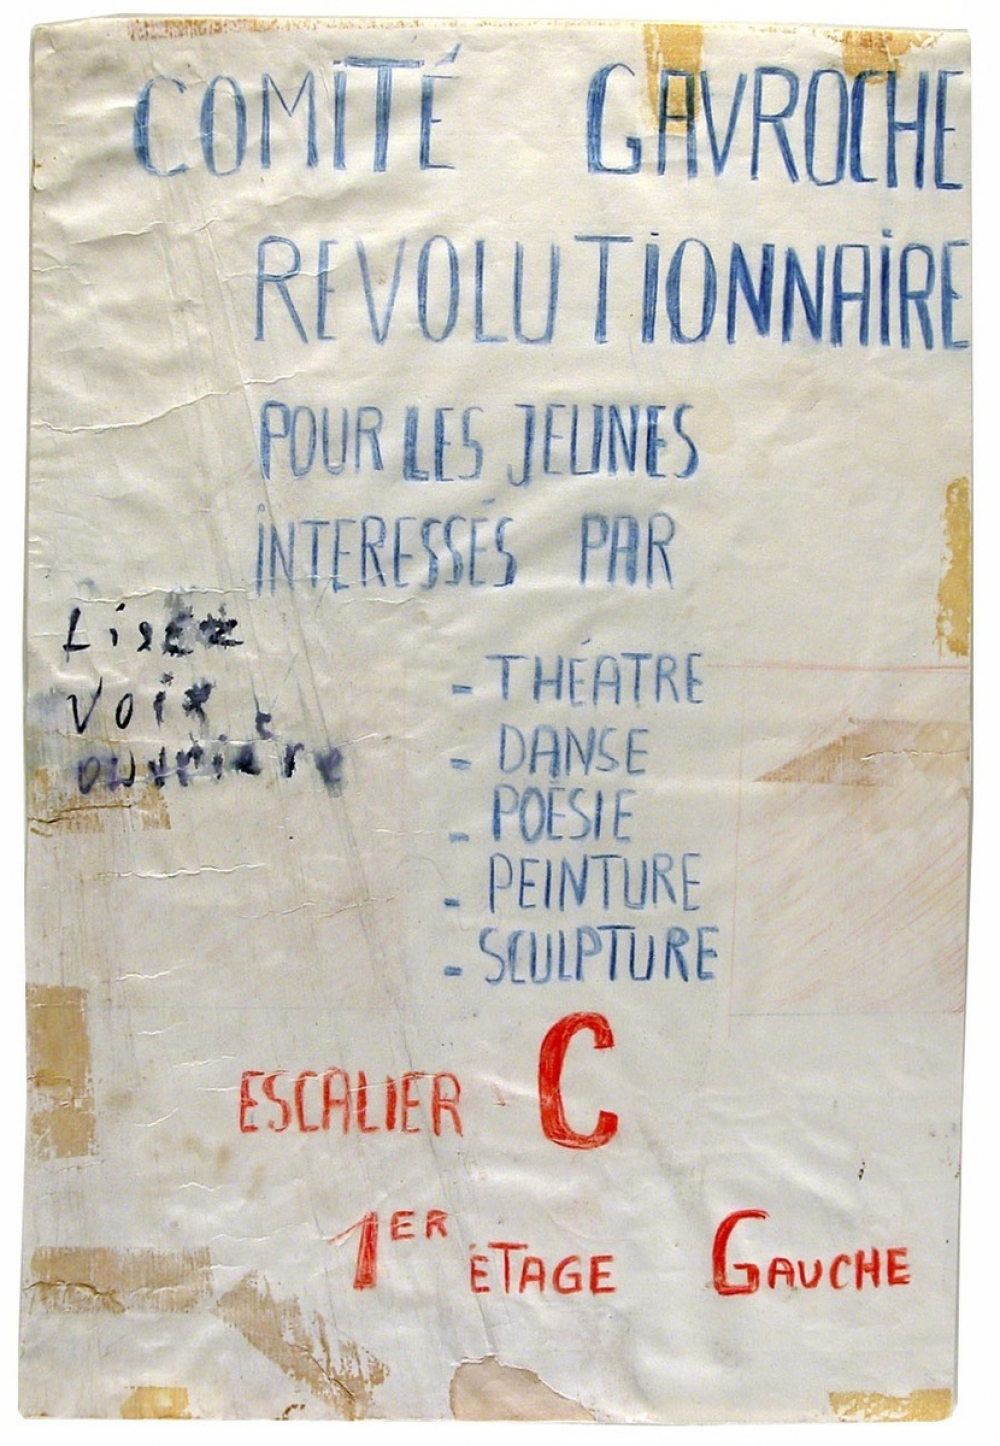 COMITÉ GAVROCHE
REVOLUTIONNAIRE
POUR LES JEUNES
INTERESSÉS PAR
Lisez
Voix
ouvrière
- THÉATRE
- DANSE
- POËSIE
- PEINTURE
- SCULPTURE
ESCALIER C
1ER ÉTAGE GAUCHE